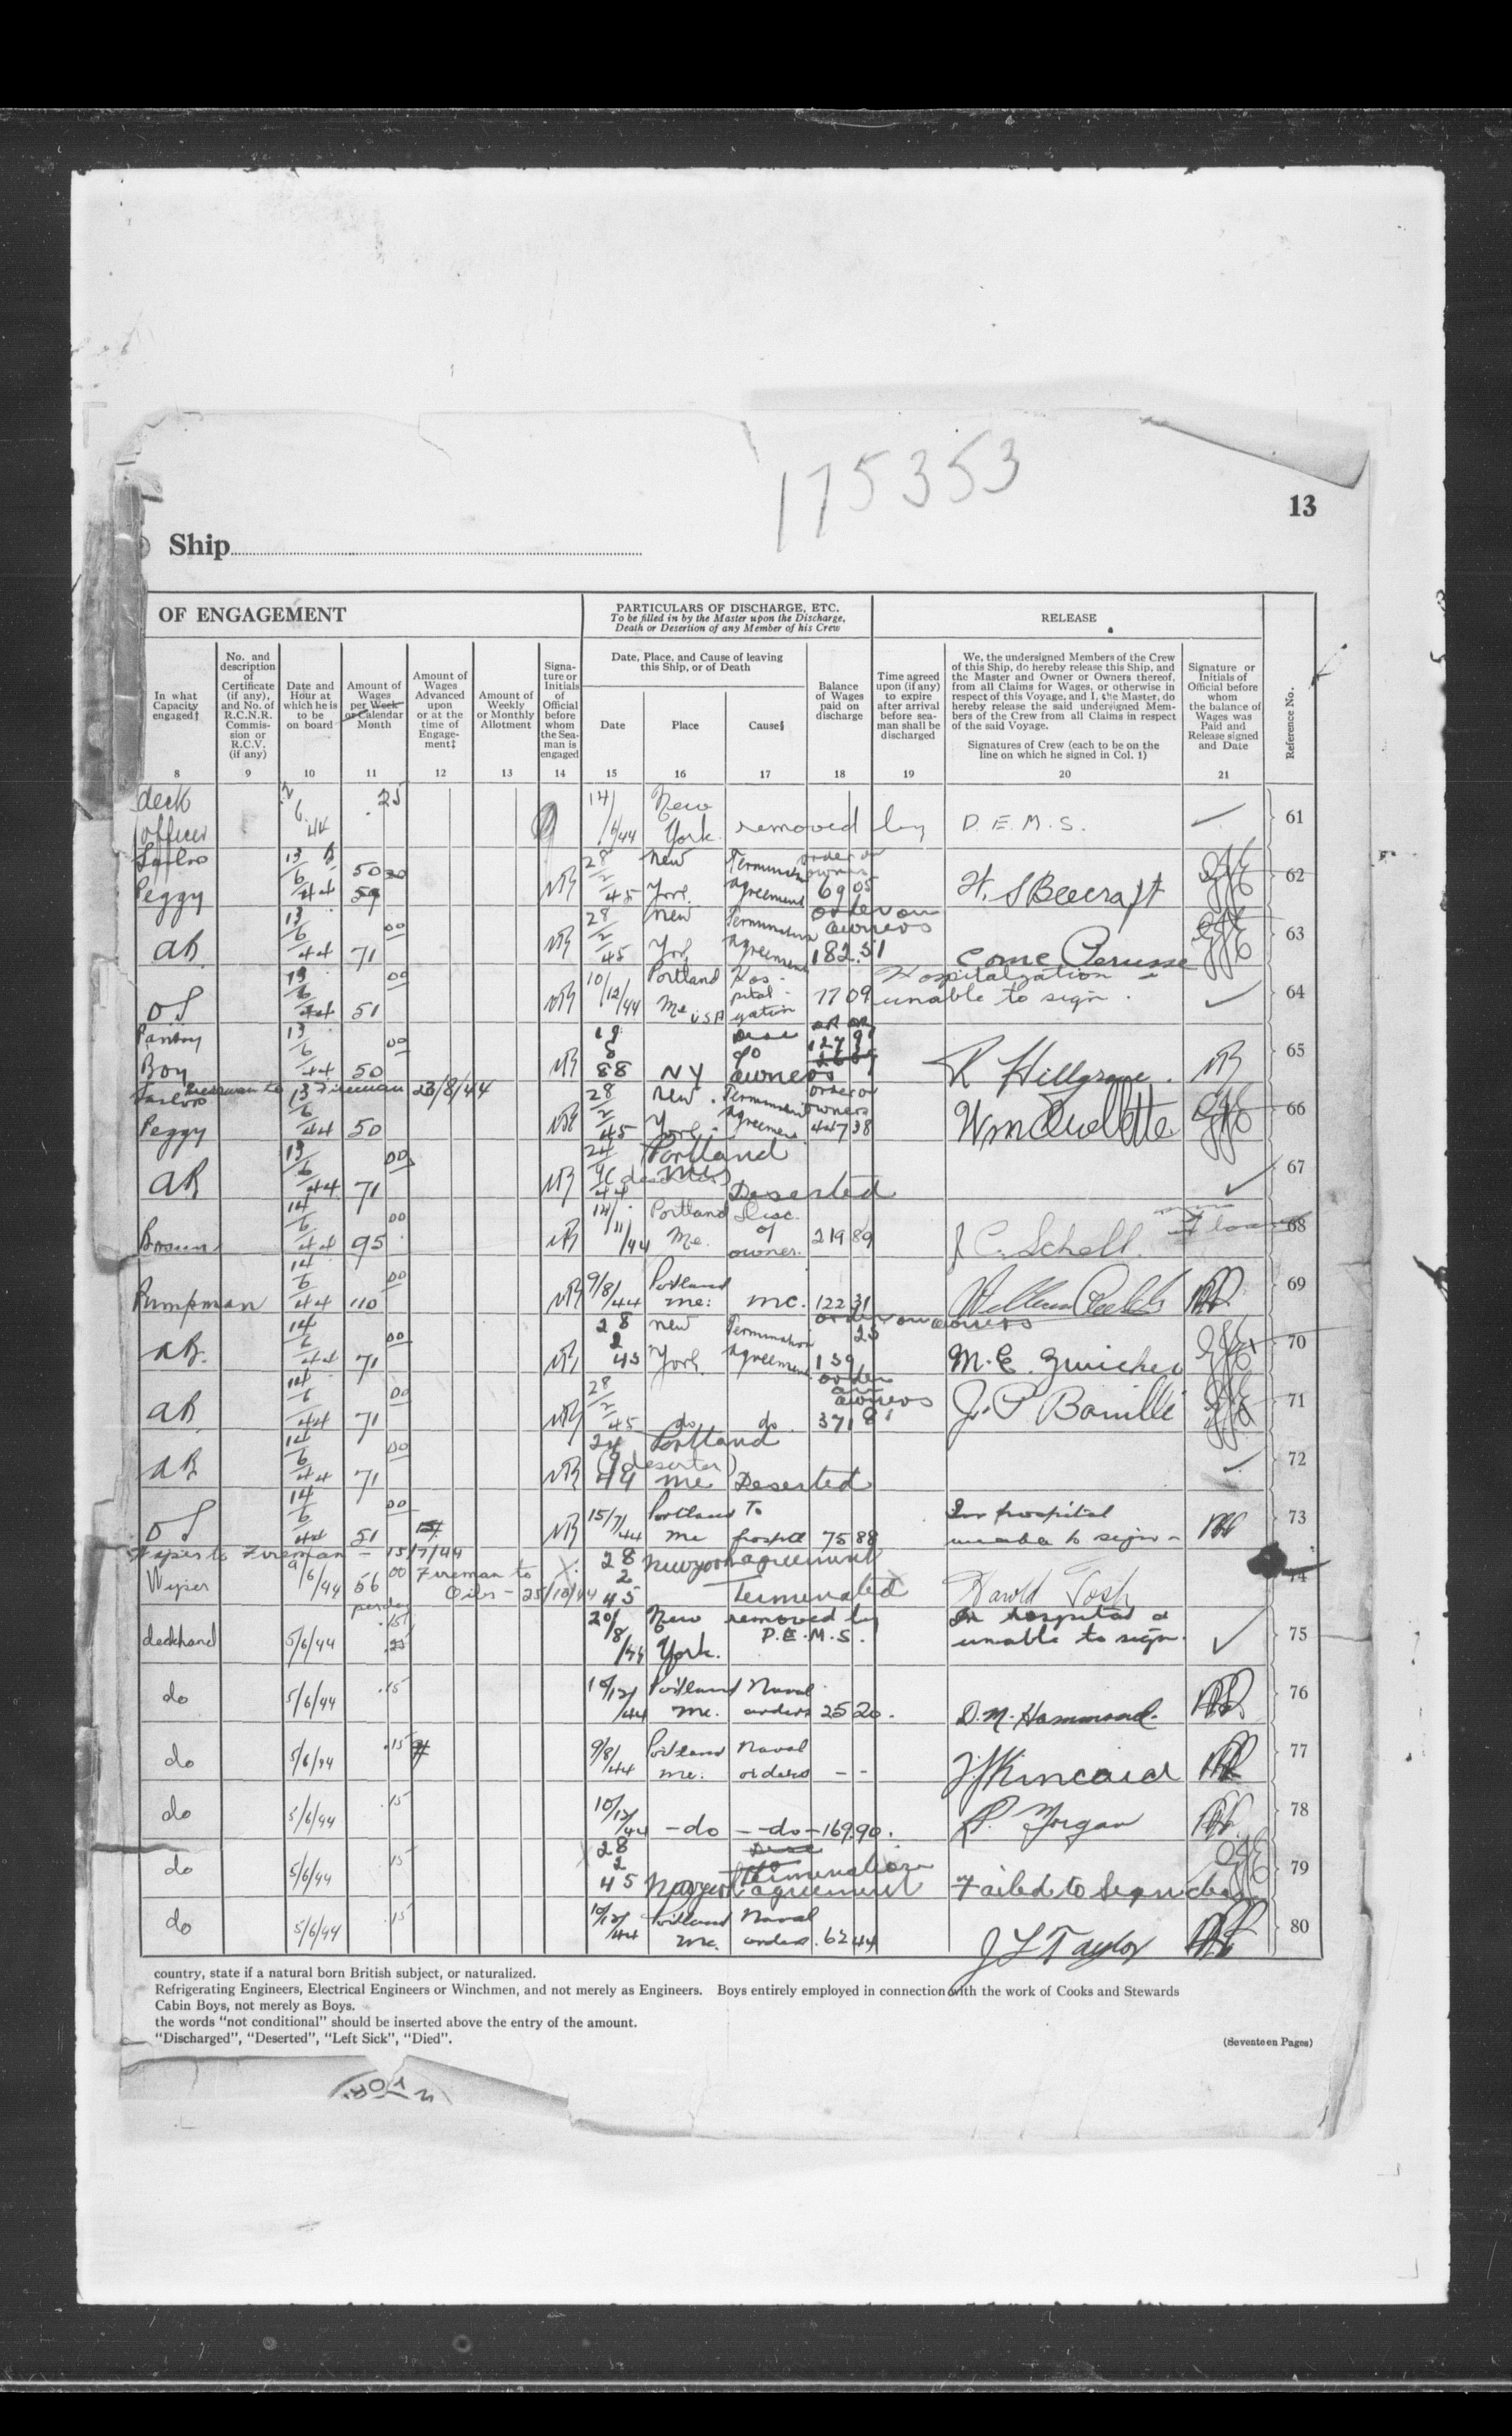 175353
13
Ship
OF ENGAGEMENT
PARTICULARS OF DISCHARGE, ETC.
To be filled in by the Master upon the Discharge,
Death or Desertion of any Member of his Crew
RELEASE
In what
Capacity
engaged†
8
No. and
description
of
Certificate
(if any),
and No. of
R.C.N.R.
Commis-
sion or
R.C.V.
(if any)
9
Date and
Hour at
which he is
to be
on board
10
Amount of
Wages
per Week
or Calendar
Month
11
Amount of
Wages
Advanced
upon
or at the
time of
Engage-
ment‡
12
Amount of
Weekly
or Monthly
Allotment
13
Signa-
ture or
Initials
of
Official
before
whom
the Sea-
man is
engaged
14
Date, Place, and Cause of leaving
this Ship, or of Death
Date
15
Place
16
Cause§
17
Balance
of Wages
paid on
discharge
18
Time agreed
upon (if any)
to expire
after arrival
before sea-
man shall be
discharged
19
We, the undersigned Members of the Crew
of this Ship, do hereby release this Ship, and
the Master and Owner or Owners thereof,
from all Claims for Wages, or otherwise in
respect of this Voyage, and I, the Master, do
hereby release the said undersigned Mem-
bers of the Crew from all Claims in respect
of the said Voyage.
Signatures of Crew (each to be on the
line on which he signed in Col. 1)
20
Signature or
Initials of
Official before
whom
the balance of
Wages was
Paid and
Release signed
and Date
21
Reference No.
deck officer 2 6 44 .25 14/6/44 New York removed by D.E.M.S. 61
Peggy 13/6/44 50 28/2/45 New York Termination agreement order on owners 69 05 H. S Beecraft 62
AB 13/6/44 71 00 28/2/45 New York Termination agreement order on owners 182.51 Come Perusse 63
OS 13/6/44 51 00 10/12/44 Portland Me USA Hospitalization 77 09 Hospitalization unable to sign. 64
Pantry Boy 13/6/44 50 00 NY owners 127 91 R Hillgrove. 65
fireman 23/8/44
Peggy 13/6/44 50 28/2/45 New York Termination agreement order on owners 447 38 Wm Ouellette 66
AB 13/6/44 71 00 24 44 Portland Me Deserted 67
Bosun 14/6/44 95 00 14/11/44 Portland Me. Disc. of owner. 219 89 J C. Schell. 68
Pumpman 14/6/44 110 00 9/8/44 Portland Me: mc. 122 31 69
AB. 14/6/44 71 00 28 2 45 New York Termination agreement 139 25 order on owners M. E. 70
AB 14/6/44 71 00 28/2/45 do do order on owners 371 81 J. P 71
AB 14/6/44 71 00 24 9 44 Portland (deserter) Me Deserted 72
OS 14/6/44 51 00 15/7/44 Portland Me To hospital 75 88 In hospital unable to sign - 73
Wiper to Fireman - 15/7/44
Wiper 9/6/44 56 00 Fireman to Oiler - 25/10/44 28 2 45 New York agreement Terminated Harold Tosh 74
deckhand 5/6/44 per day .15 .25 20/8/44 New York. removed by D.E.M.S. In hospital & unable to sign. 75
do 5/6/44 .15 10/12/44 Portland Me. Naval orders 25 20. D. M. Hammond. 76
do 5/6/44 .15 9/8/44 Portland Me: Naval orders - - Kincaid 77
do 5/6/44 .15 10/12/44 - do - - do - 169 90. P. Morgan 78
do 5/6/44 .15 28 2 45 New York Termination agreement Failed to sign clear 79
do 5/6/44 .15 10/12/44 Portland Me. Naval orders. 62 44 J L Taylor 80
country, state if a natural born British subject, or naturalized.
Refrigerating Engineers, Electrical Engineers or Winchmen, and not merely as Engineers. Boys entirely employed in connection with the work of Cooks and Stewards
Cabin Boys, not merely as Boys.
the words “not conditional” should be inserted above the entry of the amount.
“Discharged”, “Deserted”, “Left Sick”, “Died”.
(Seventeen Pages)